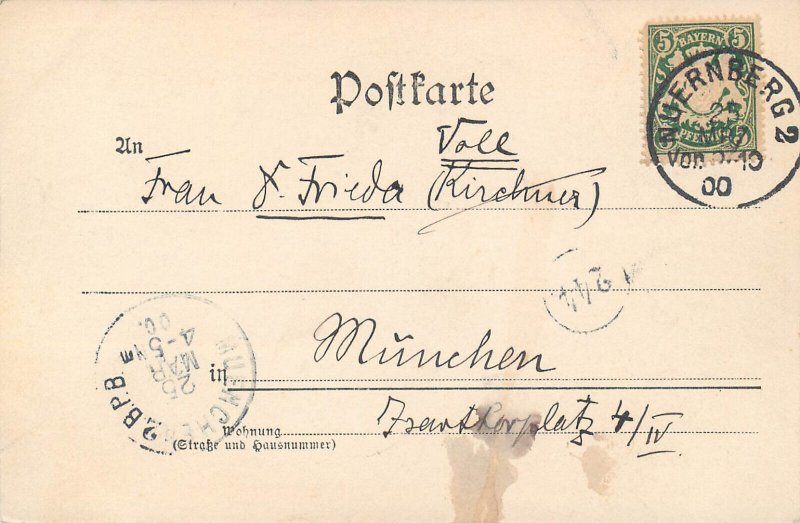 5 BAYERN 5
PFENNIG
NUERNBERG 2
25
Vor. 9-10
00
Postkarte
An
Voll
Frau Dr. Frieda (Kirchner)
244
München
in
Isarthorplatz 4/IV
Wohnung
(Straße und Hausnummer)
MUENCHEN 2.B.P.B
25
MAR
4-5 N
00